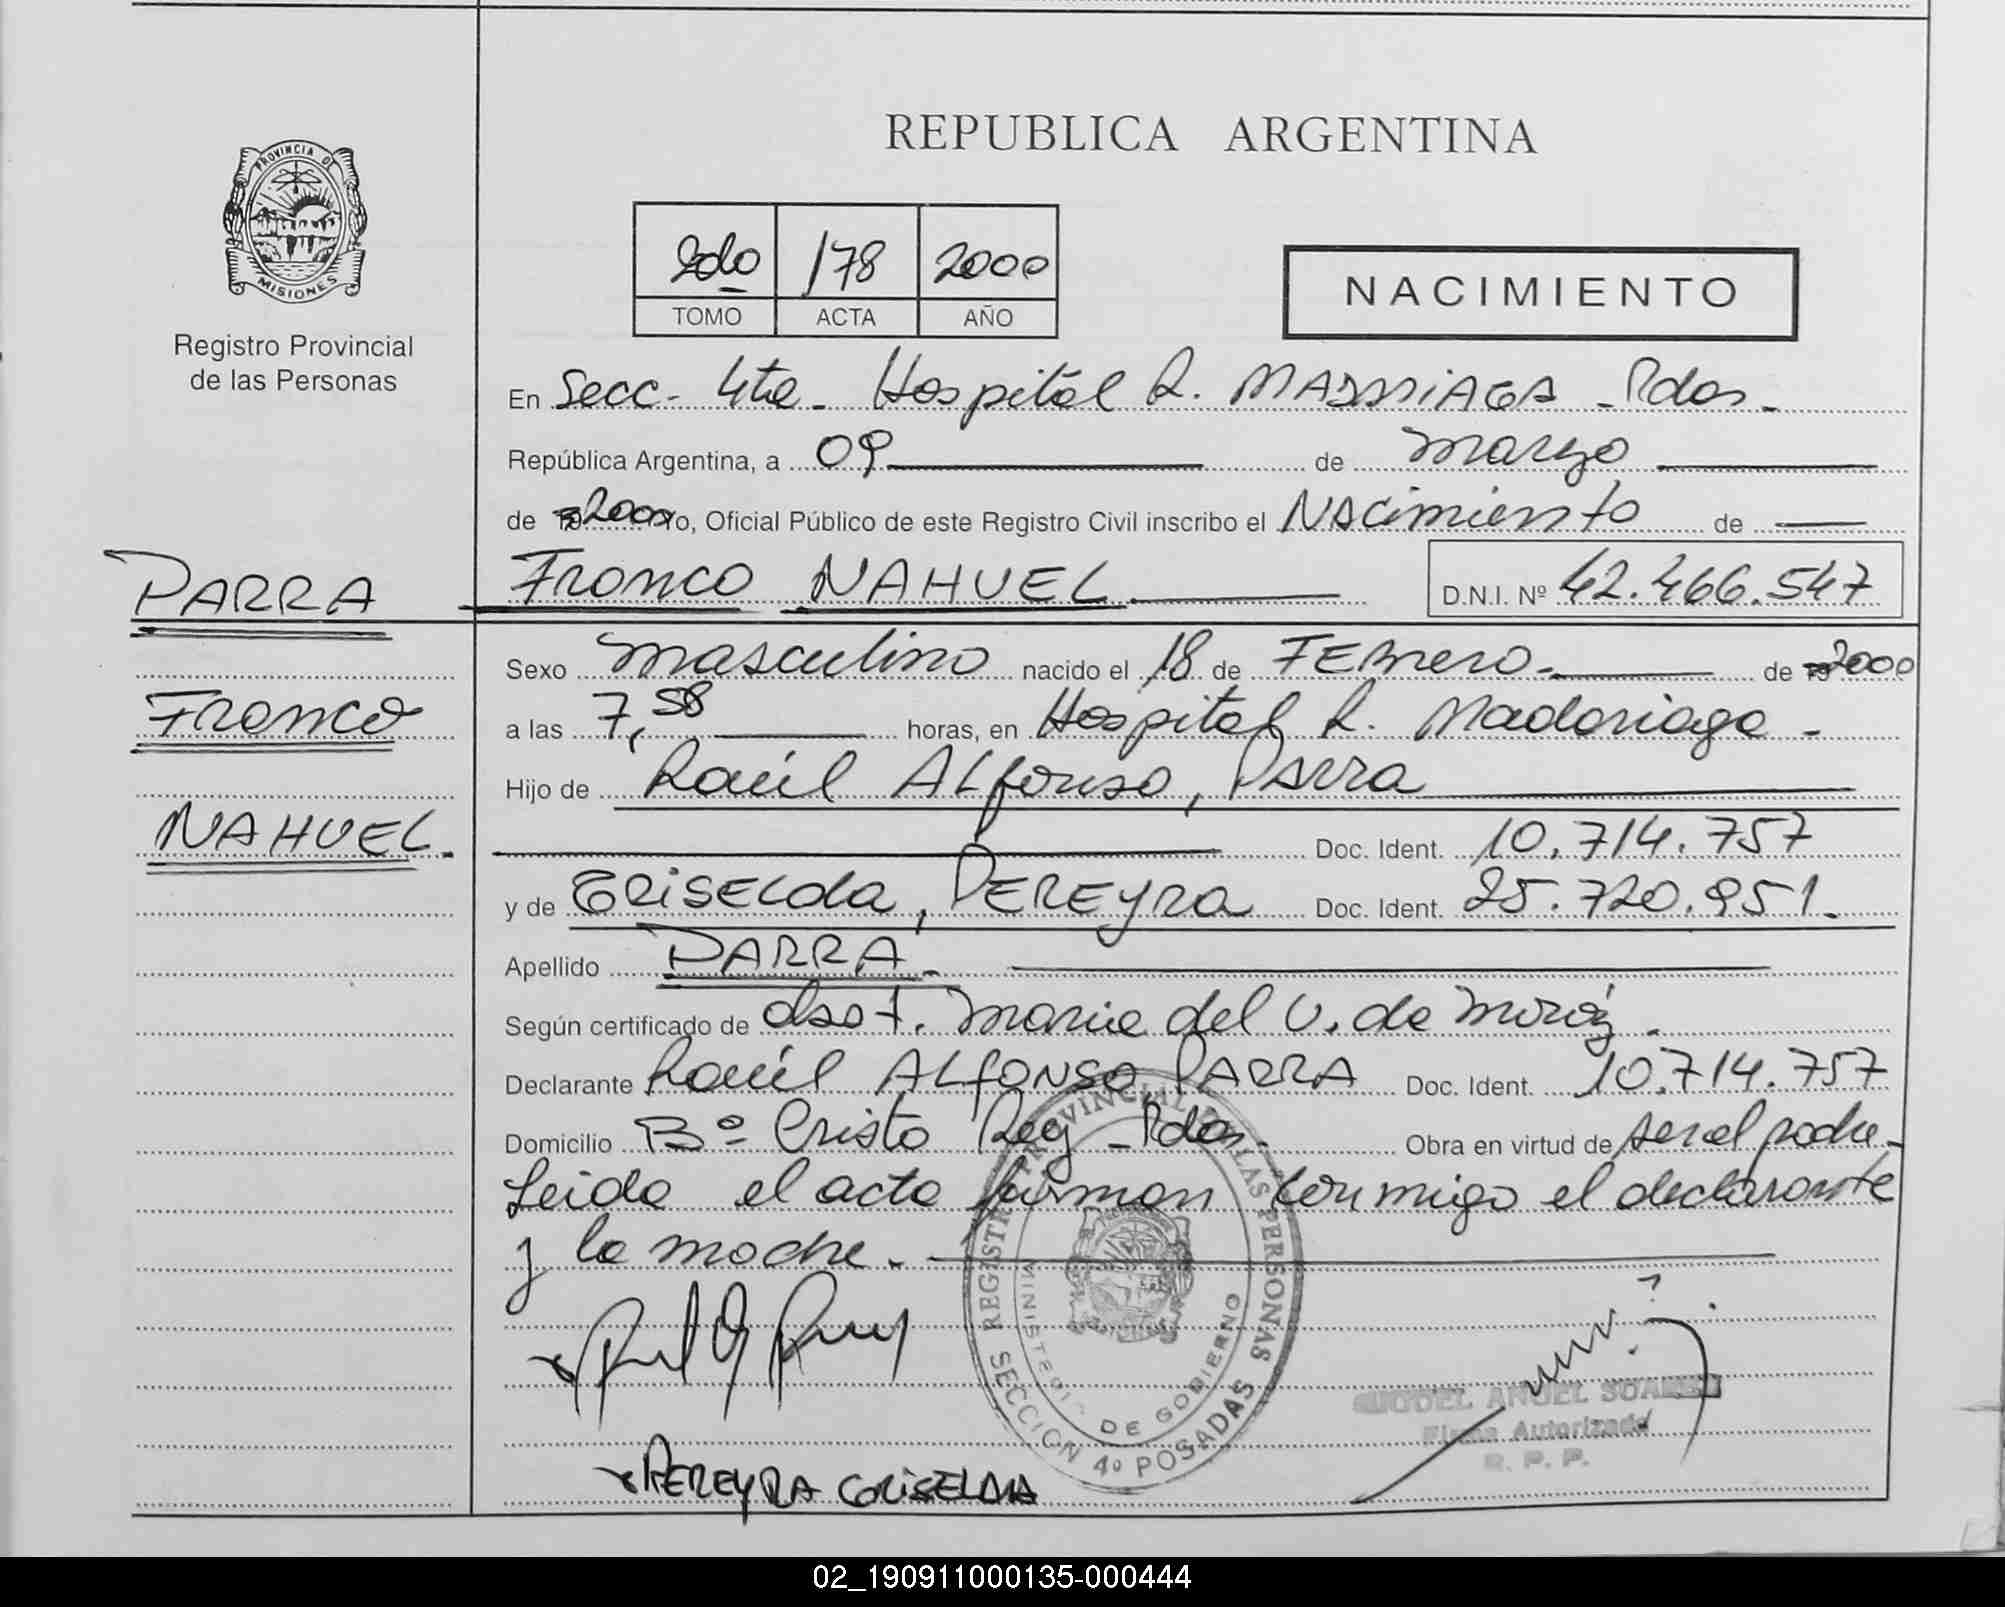 REPUBLICA ARGENTINA
PROVINCIA DE
MISIONES
Registro Provincial
de las Personas
2do 178 2000
TOMO ACTA AÑO
NACIMIENTO
En Secc. 4ta. Hospital R. MADARIAGA - Pdas.
República Argentina, a 09 de marzo
de 2000 Yo, Oficial Público de este Registro Civil inscribo el NACimiento de
PARRA
Franco NAHUEL
D.N.I. Nº 42.466.547
Sexo masculino nacido el 18 de FEBrero. de 2000
Franco
a las 7,58 horas, en Hospital R. Madariaga -
Hijo de Raúl ALfonso, PArra
NAHUEL.
Doc. Ident. 10.714.757
y de GRiSELda, PEREyRa Doc. Ident. 25.720.951.
Apellido PARRA.
Según certificado de obst. Maria del C. de
Declarante Raúl ALfONSO PARRA Doc. Ident. 10.714.757
Domicilio Bº Cristo Rey - Pdas. Obra en virtud de ser el padre.
Leida el acta firman conmigo el declarante
y la madre.
REGISTRO PROVINCIAL DE LAS PERSONAS
MINISTERIO DE GOBIERNO
SECCION 4º POSADAS
MIGUEL ANGEL SUAREZ
Firma Autorizada
R. P. P.
x PEREYRA GRiSELDA
02_190911000135-000444